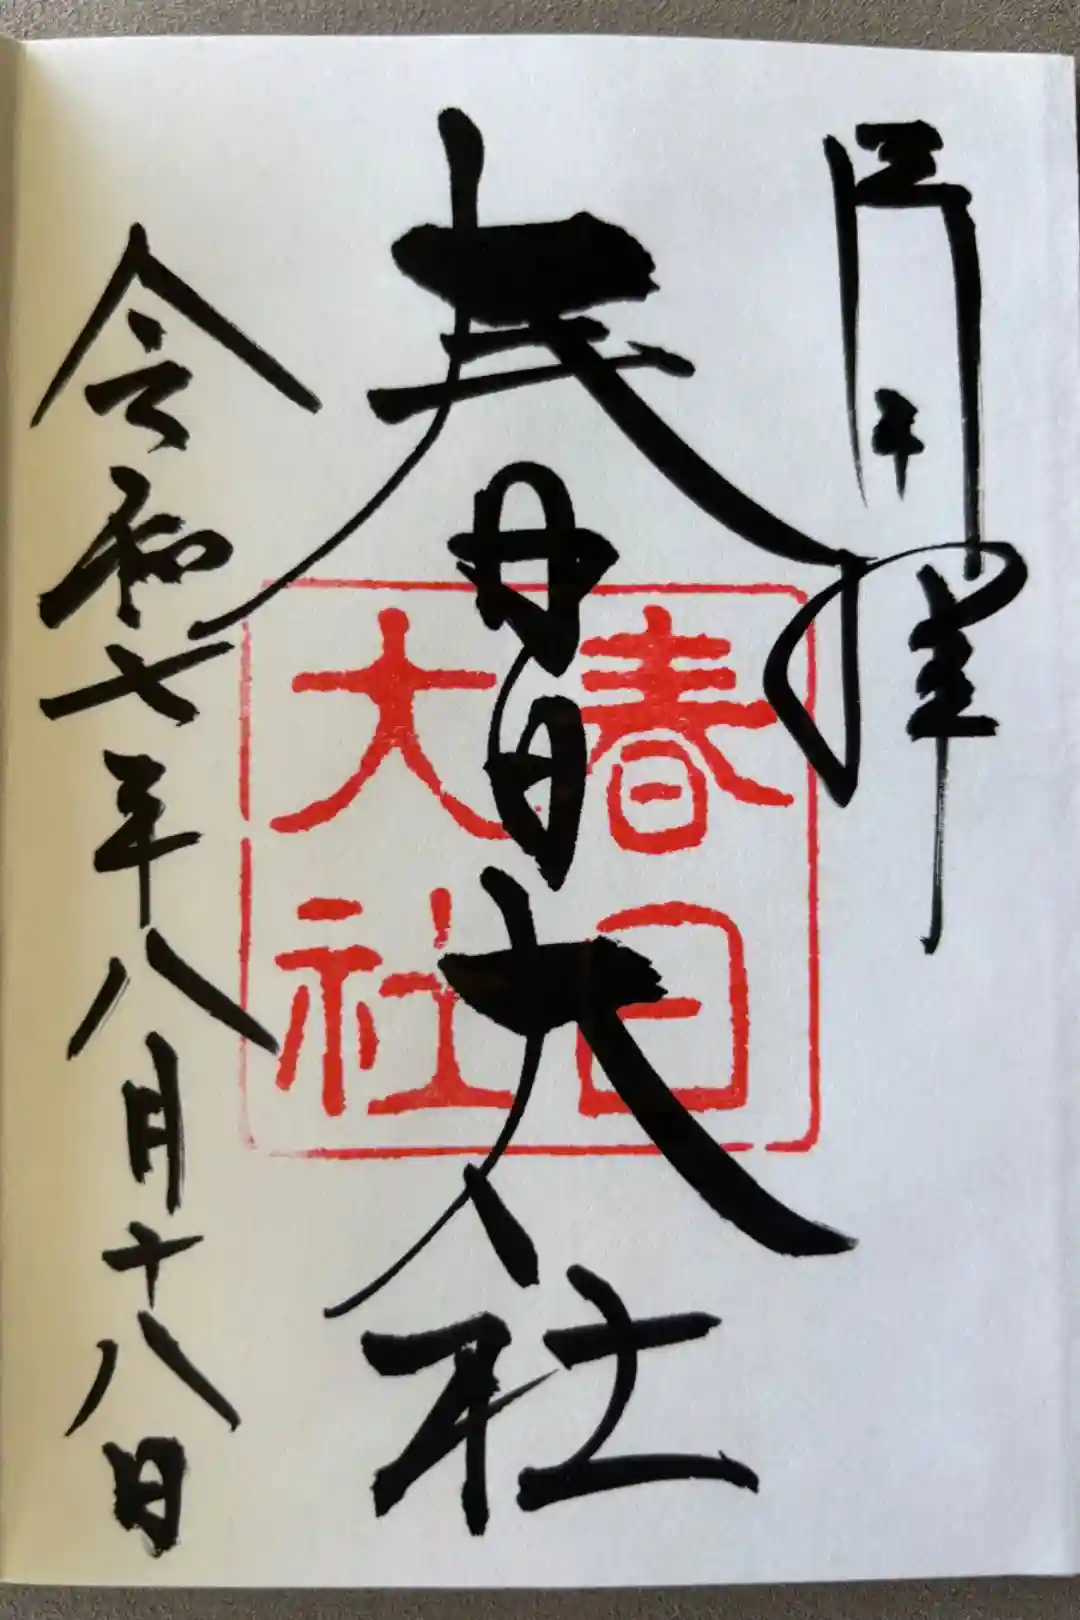 奉拝
春日大社
春日
大社
令和七年八月十八日